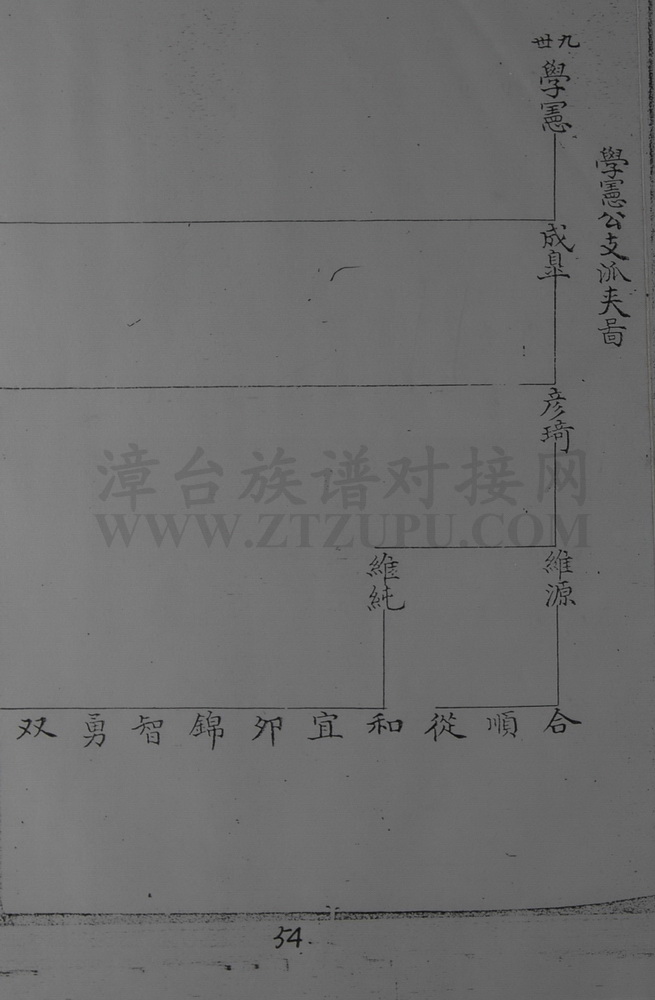 學憲公支派夹啚
九世
學憲
成皐
彦琦
維源
維純
合
順
從
和
宜
卯
錦
智
勇
双
漳台族谱对接网
WWW.ZTZUPU.COM
54.